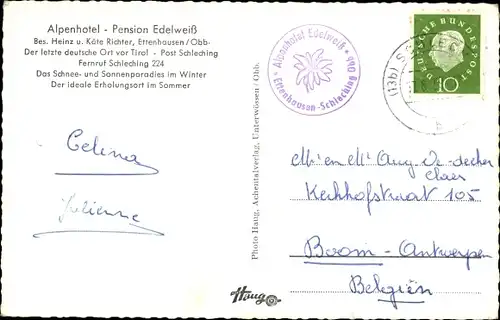 Alpenhotel - Pension Edelweiß
Bes. Heinz u. Käte Richter, Ettenhausen/Obb.
Der letzte deutsche Ort vor Tirol - Post Schleching
Fernruf Schleching 224
Das Schnee- und Sonnenparadies im Winter
Der ideale Erholungsort im Sommer
Celina
Julienne
Photo Haug, Achentalverlag, Unterwössen / Obb.
Haug
Alpenhotel Edelweiß
Ettenhausen-Schleching Obb.
(13b)
DEUTSCHE BUNDESPOST
10
b
Mr en Me Aug De decker
Claes
Kerkhofstraat 105
Boom - Antwerpen
Belgiën